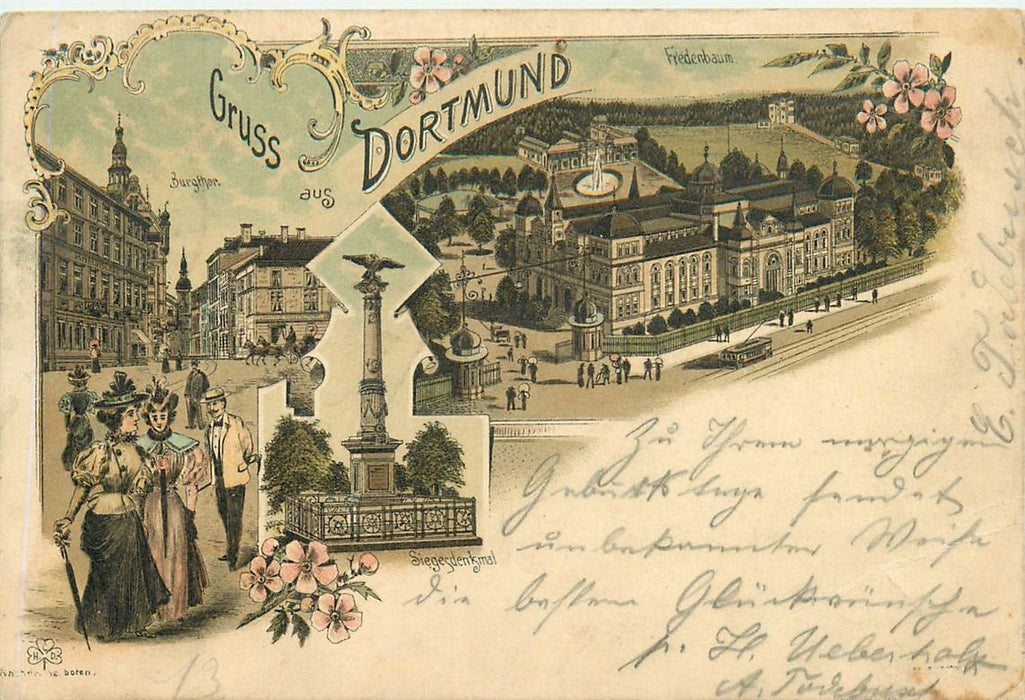 Gruss
aus
DORTMUND
Fredenbaum.
Burgthor.
Siegesdenkmal
Zu Ihrem morgigen
Geburtstage sendet
unbekannter Weise
die besten Glückwünsche
H.
A.
E.
H C D
verboten.
13